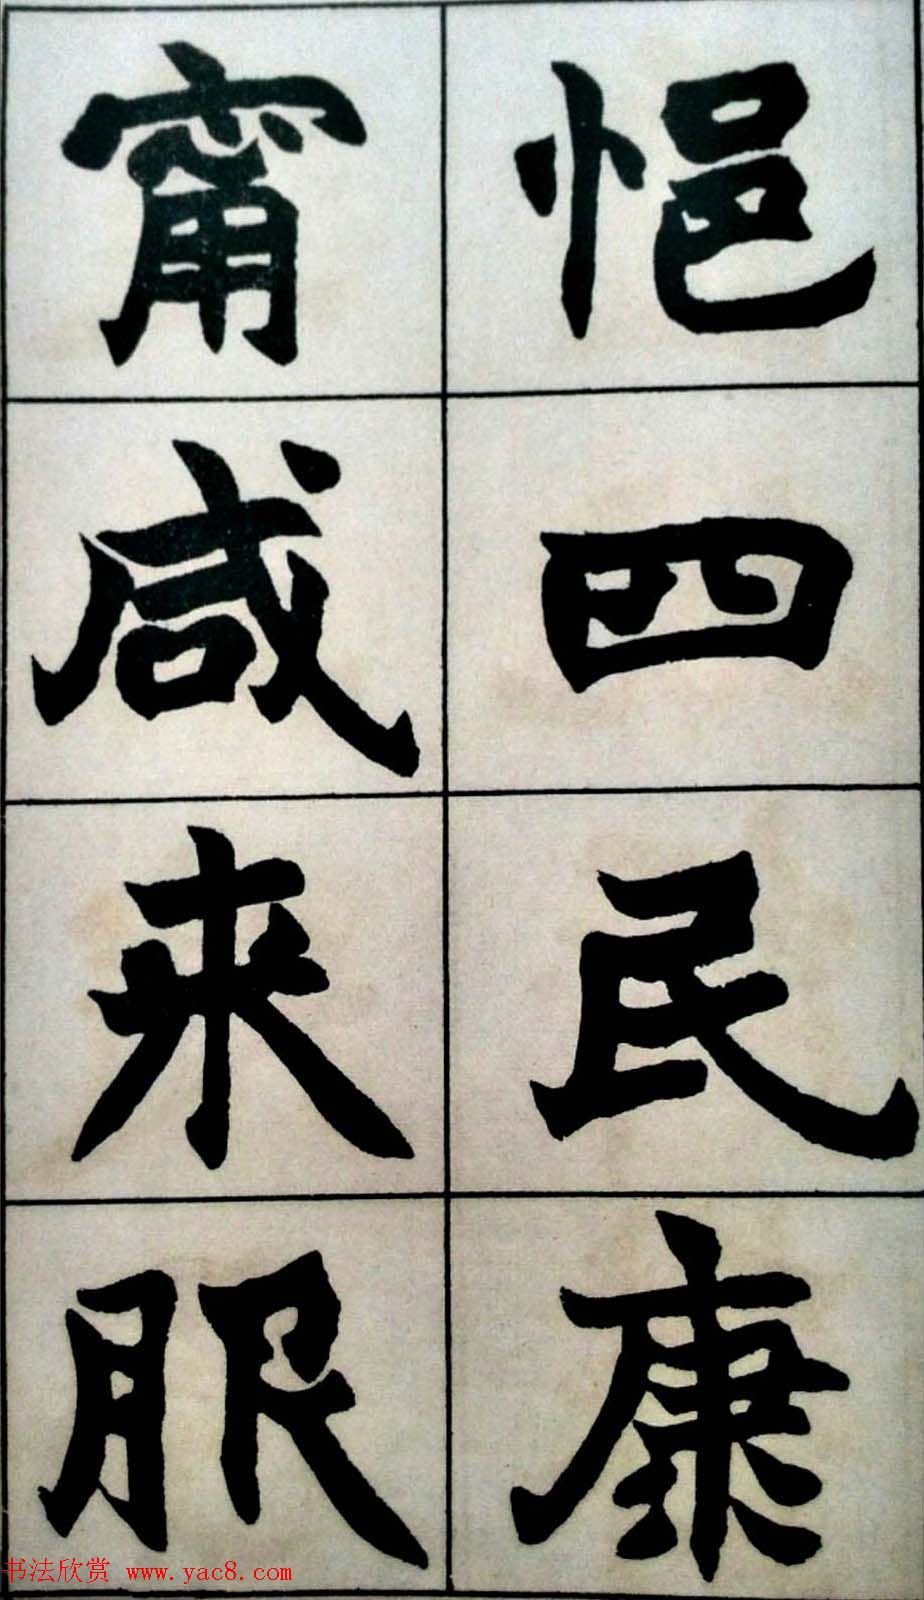 悒四民康
甯咸来服
书法欣赏 www.yac8.com